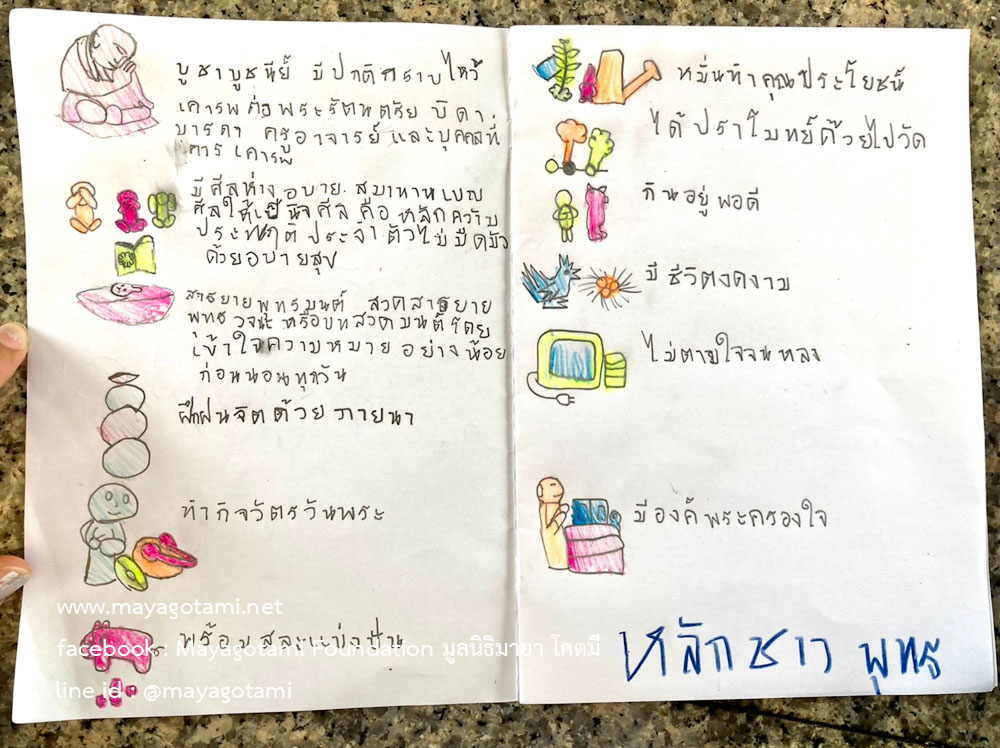 บูชาบูชนีย์ มีปกติกราบไหว้
เคารพต่อพระรัตนตรัย บิดา
มารดา ครูอาจารย์ และบุคคลที่
ควรเคารพ
มีศีลห่างอบาย สมาทานเบญ
ศีลให้เป็นนิจศีล คือ หลักความ
ประพฤติประจำตัวไม่มืดมัว
ด้วยอบายสุข
สาธยายพุทธมนต์ สวดสาธยาย
พุทธวจนะหรือบทสวดมนต์โดย
เข้าใจความหมาย อย่างน้อย
ก่อนนอนทุกวัน
ฝึกฝนจิตด้วยภายนา
ทำกิจวัตรวันพระ
พร้อมสละแบ่งปัน
หมั่นทำคุณประโยชน์
ได้ปราโมทย์ด้วยไปวัด
กินอยู่พอดี
มีชีวิตงดงาม
ไม่ตามใจจนหลง
มีองค์พระครองใจ
หลักชาวพุทธ
www.mayagotami.net
facebook : Mayagotami Foundation มูลนิธิมายา โคตมี
line id : @mayagotami